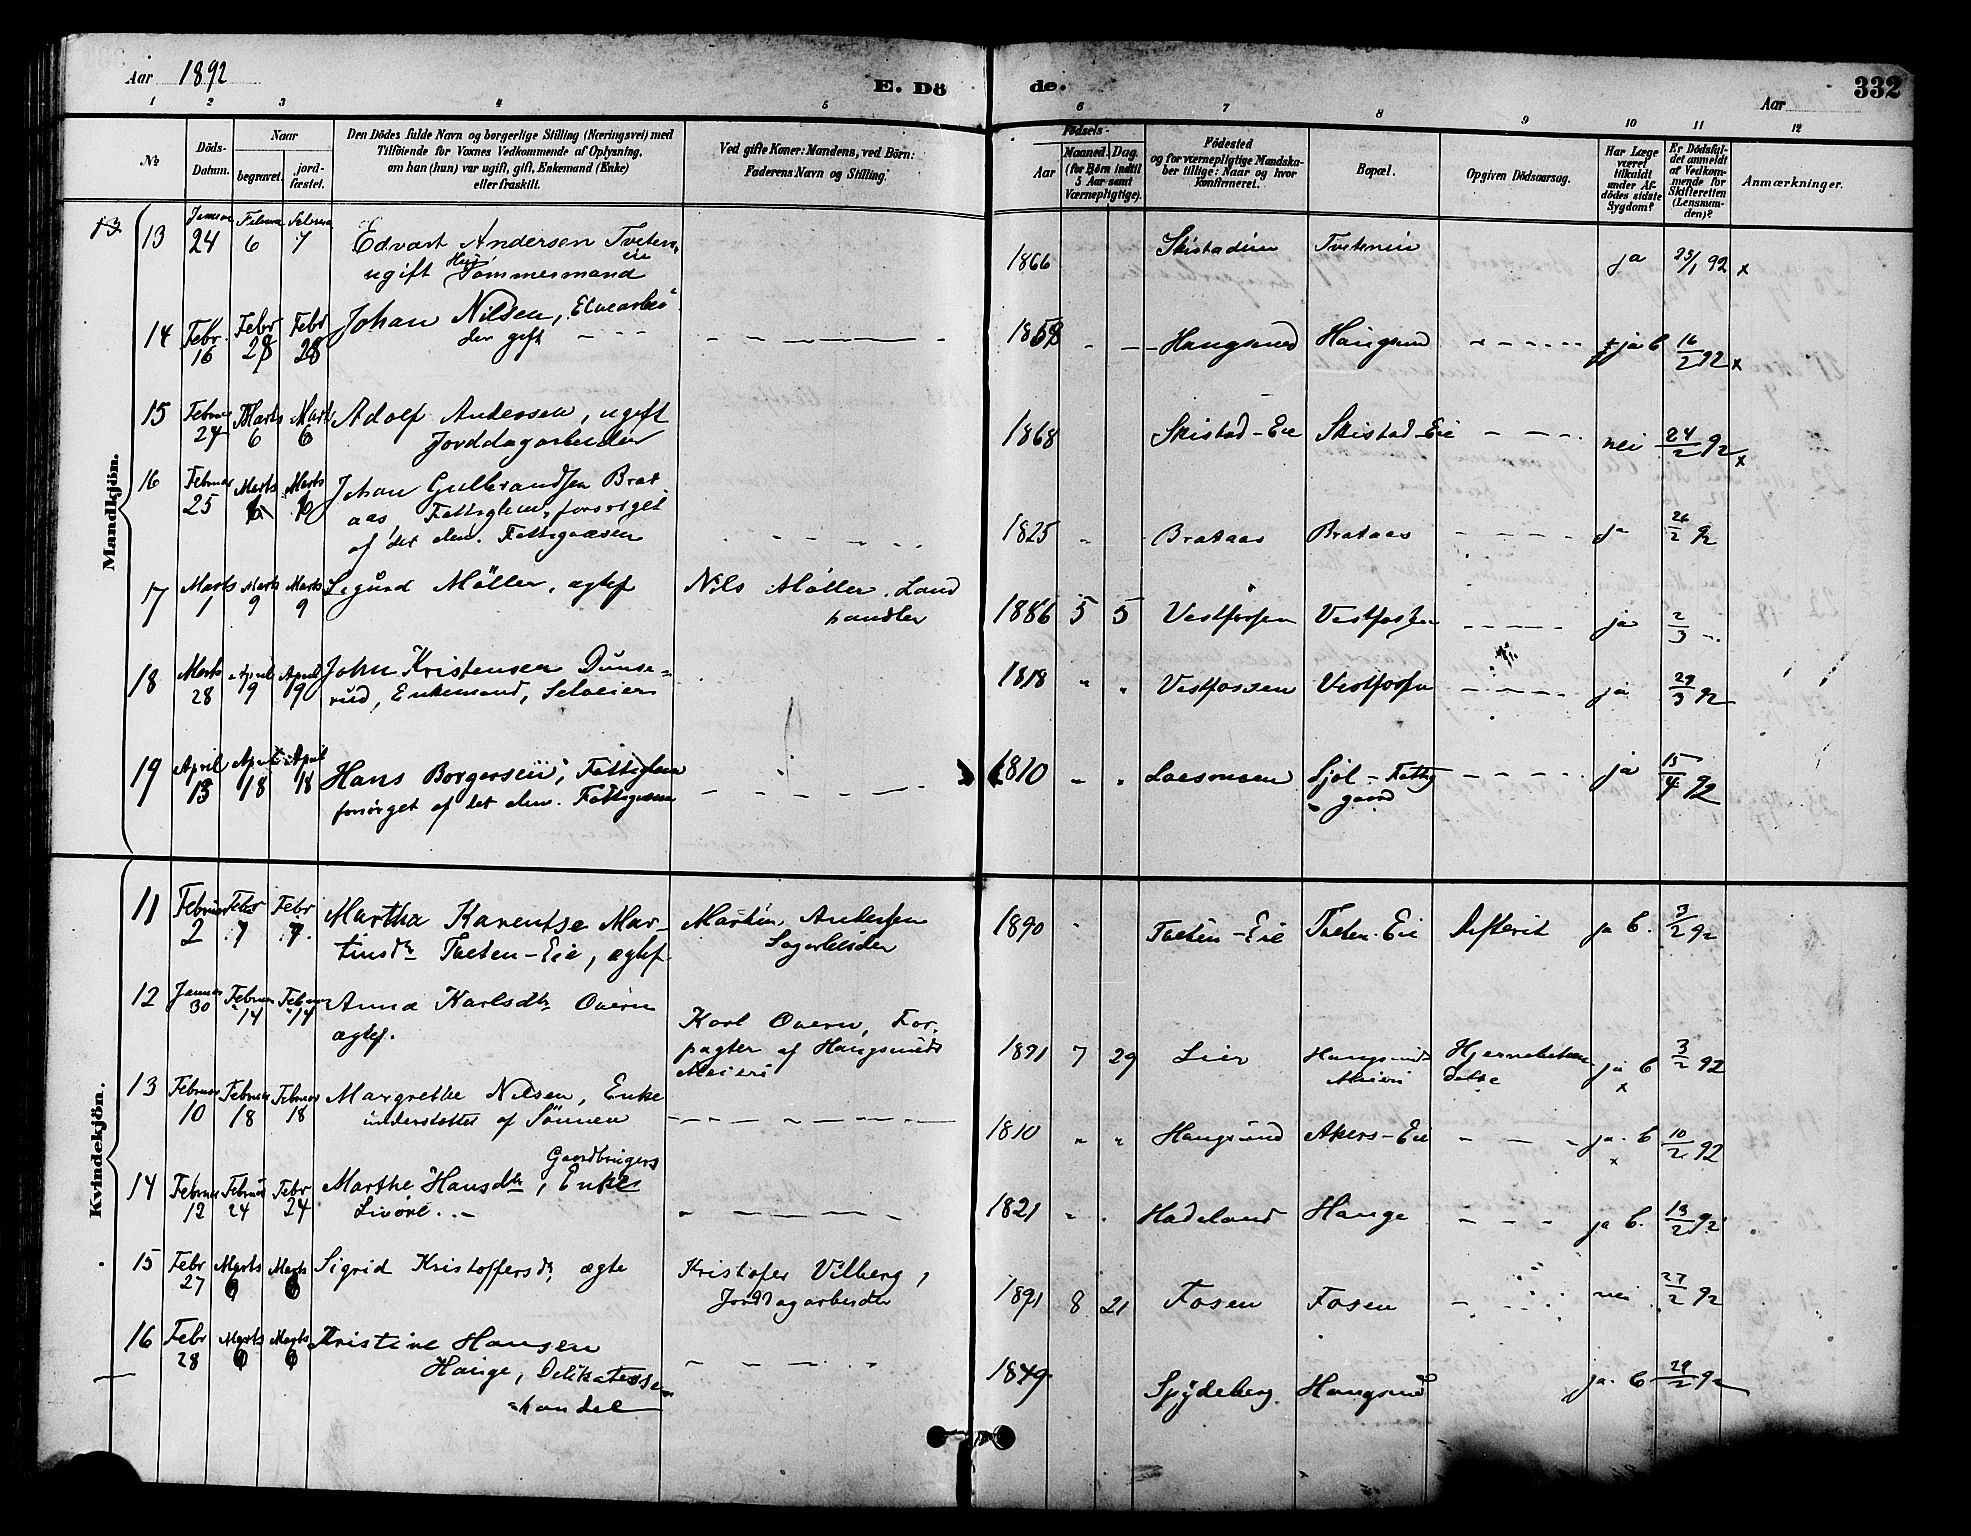 Aar 1892
E. Dö
de.
Aar
332
1 2 3 4 5 6 7 8 9 10 11 12
No
Döds-
Datum.
Naar
begravet.
jord-
fæstet.
Den Dödes fulde Navn og borgerlige Stilling (Næringsvei) med
Tilföiende for Voxnes Vedkommende af Oplysning,
om han (hun) var ugift, gift, Enkemand (Enke)
eller fraskilt.
Ved gifte Koner: Mandens, ved Börn:
Faderens Navn og Stilling.
Födsels-
Aar
Maaned. Dag.
(for Börn indtil
5 Aar samt
Værnepligtige).
Födested
og for værnepligtige Mandska-
ber tillige: Naar og hvor
konfirmeret.
Bopæl.
Opgiven Dödsaarsag.
Har Læge
været
tilkaldt
under Af-
dödes sidste
Sygdom?
Er Dödsfal-
det anmeldt
af Vedkom-
mende for
Skifteretten
(Lensman-
den)?
Anmærkninger.
Mandkjön.
13 24 6 7 Edvart Andersen Tveten
eie
ugift Tömmermand
1866 Tveteneie ja 25/1 92 x
14 Febr 16 Febr 28 Febr 28 Johan Nilsen, Elvearbei
der gift
Haugsund Haugsund ja b 16/2 92 x
15 Februar 24 Marts 6 Marts 6 Adolf Andersen, ugift
Jorddagarbeider
1868 Skistad-Eie Skistad-Eie nei 24/2 92 x
16 Februar 25 Marts 6 Marts 6 Johan Gulbrandsen Brat
aas Fattiglem, forsörget
af det alm. Fattigvæsen
1825 Brataas Brataas ja 26/2 92
17 Marts 1 Marts 9 Marts 9 Sigurd Möller, ægtef
Nils Möller, Land
handler
1886 5 5 Vestfossen Vestfossen ja 2/3
18 Marts 28 April 19 April 19 John Kristensen Dunse-
rud, Enkemand, Selveier
1818 " " Vestfossen Vestfossen ja 29/3 92
19 April 13 April 18 April 18 Hans Borgersen, Fattiglem
forsörget af det alm. Fattigvæsen
1810 " " Sjöl-Fattig
gaard
ja 15/4 92
Kvindekjön.
11 Februar 2 Febr 7 Febr 7 Martha Karentse Mar-
tinsdtr Tveten-Eie, ægtef
Martin Andersen
Sagarbeider
1890 " Tveten-Eie Tveten-Eie Difterit ja b. 3/2 92
12 Januar 30 Februar 14 Februar 14 Anna Karlsdtr Overn
ægtef.
Karl Overn, For-
pagter af Haugsunds
Meieri
1891 7 29 Lier Haugsunds
Meieri
ja b x 3/2 92
13 Februar 10 Februar 18 Februar 18 Margrethe Nilsen, Enke
understöttet af Sönnen
1810 " " Haugsund Akers-Eie ja b x 10/2 92
14 Februar 12 Februar 24 Febr 24 Marthe Hansdtr, Gaardbrugers
Enke
1821 " " Hadeland Hauge ja b. 13/2 92
15 Febr 27 Marts 6 Marts 6 Sigrid Kristoffersdtr, ægte
Kristofer Vilberg,
Jorddagarbeider
1891 8 21 Fosen Fosen nei 27/2 92
16 Febr 28 Marts 6 Marts 6 Kristine Hansen
Hauge, Delikatesse
handel
1849 Spydeberg. Haugsund ja b 29/2 92